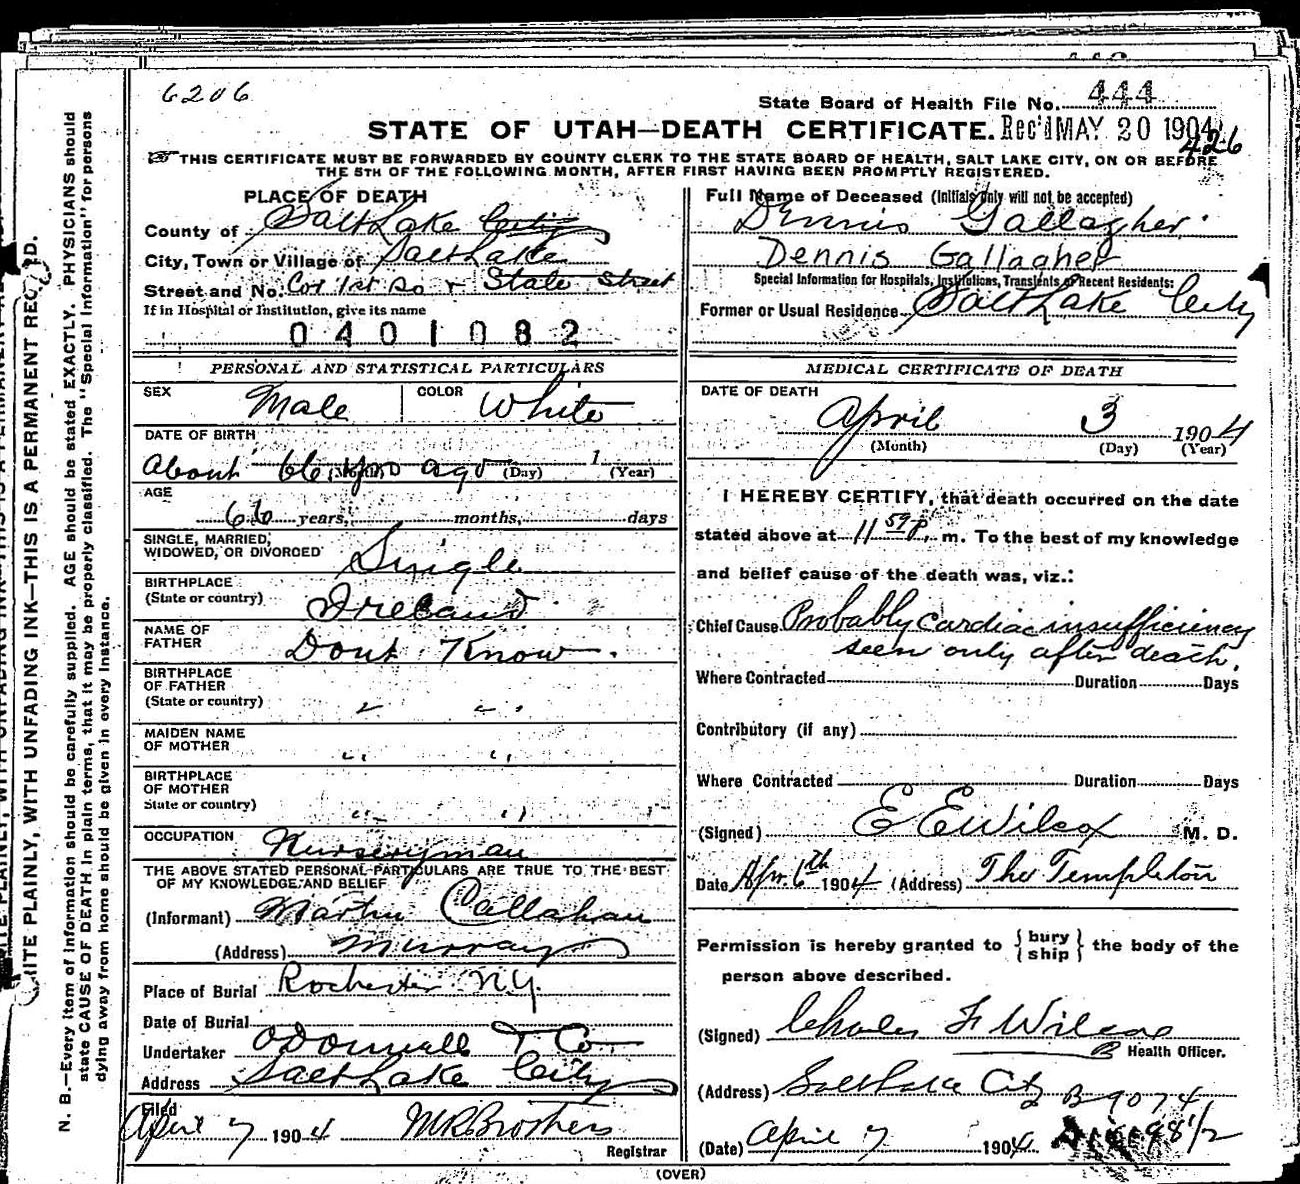 6206
State Board of Health File No. 444
STATE OF UTAH—DEATH CERTIFICATE. Rec'd MAY 20 1904
426
THIS CERTIFICATE MUST BE FORWARDED BY COUNTY CLERK TO THE STATE BOARD OF HEALTH, SALT LAKE CITY, ON OR BEFORE
THE 5TH OF THE FOLLOWING MONTH, AFTER FIRST HAVING BEEN PROMPTLY REGISTERED.
PLACE OF DEATH
County of Salt Lake City
City, Town or Village of Salt Lake
Street and No. Cor 1st So + State Street
If in Hospital or Institution, give its name
0401082
PERSONAL AND STATISTICAL PARTICULARS
SEX Male COLOR White
DATE OF BIRTH
About 66 yrs ago (Month) (Day) 1 (Year)
AGE
66 years, months, days
SINGLE, MARRIED,
WIDOWED, OR DIVORCED Single
BIRTHPLACE
(State or country) Ireland
NAME OF
FATHER Dont Know.
BIRTHPLACE
OF FATHER
(State or country) " "
MAIDEN NAME
OF MOTHER " "
BIRTHPLACE
OF MOTHER
State or country) " "
OCCUPATION Nurseryman
THE ABOVE STATED PERSONAL PARTICULARS ARE TRUE TO THE BEST
OF MY KNOWLEDGE AND BELIEF
(Informant) Martin Callahan
(Address) Murray
Place of Burial Rochester N.Y.
Date of Burial
Undertaker ODonnell & Co
Address Salt Lake City
Filed
April 7 1904 M R Brothers
Registrar
Full Name of Deceased (Initials only will not be accepted)
Dennis Gallagher.
Dennis Gallagher
Special Information for Hospitals, Institutions, Transients or Recent Residents:
Former or Usual Residence Salt Lake City
MEDICAL CERTIFICATE OF DEATH
DATE OF DEATH
April 3 1904
(Month) (Day) (Year)
I HEREBY CERTIFY, that death occurred on the date
stated above at 11 59 P. m. To the best of my knowledge
and belief cause of the death was, viz.:
Chief Cause Probably Cardiac insufficiency
seen only after death.
Where Contracted Duration Days
Contributory (if any)
Where Contracted Duration Days
(Signed) E E Wilcox M. D.
Date Apr. 6th 1904 (Address) The Templeton
Permission is hereby granted to {bury
ship} the body of the
person above described.
(Signed) Charles F Wilcox
Health Officer.
(Address) Salt Lake City B 9074
(Date) April 7 1904
(OVER)
N. B.—Every item of information should be carefully supplied. AGE should be stated EXACTLY. PHYSICIANS should
state CAUSE OF DEATH in plain terms, that it may be properly classified. The "Special Information" for persons
dying away from home should be given in every instance.
ITE PLAINLY, WITH UNFADING INK—THIS IS A PERMANENT RECORD.